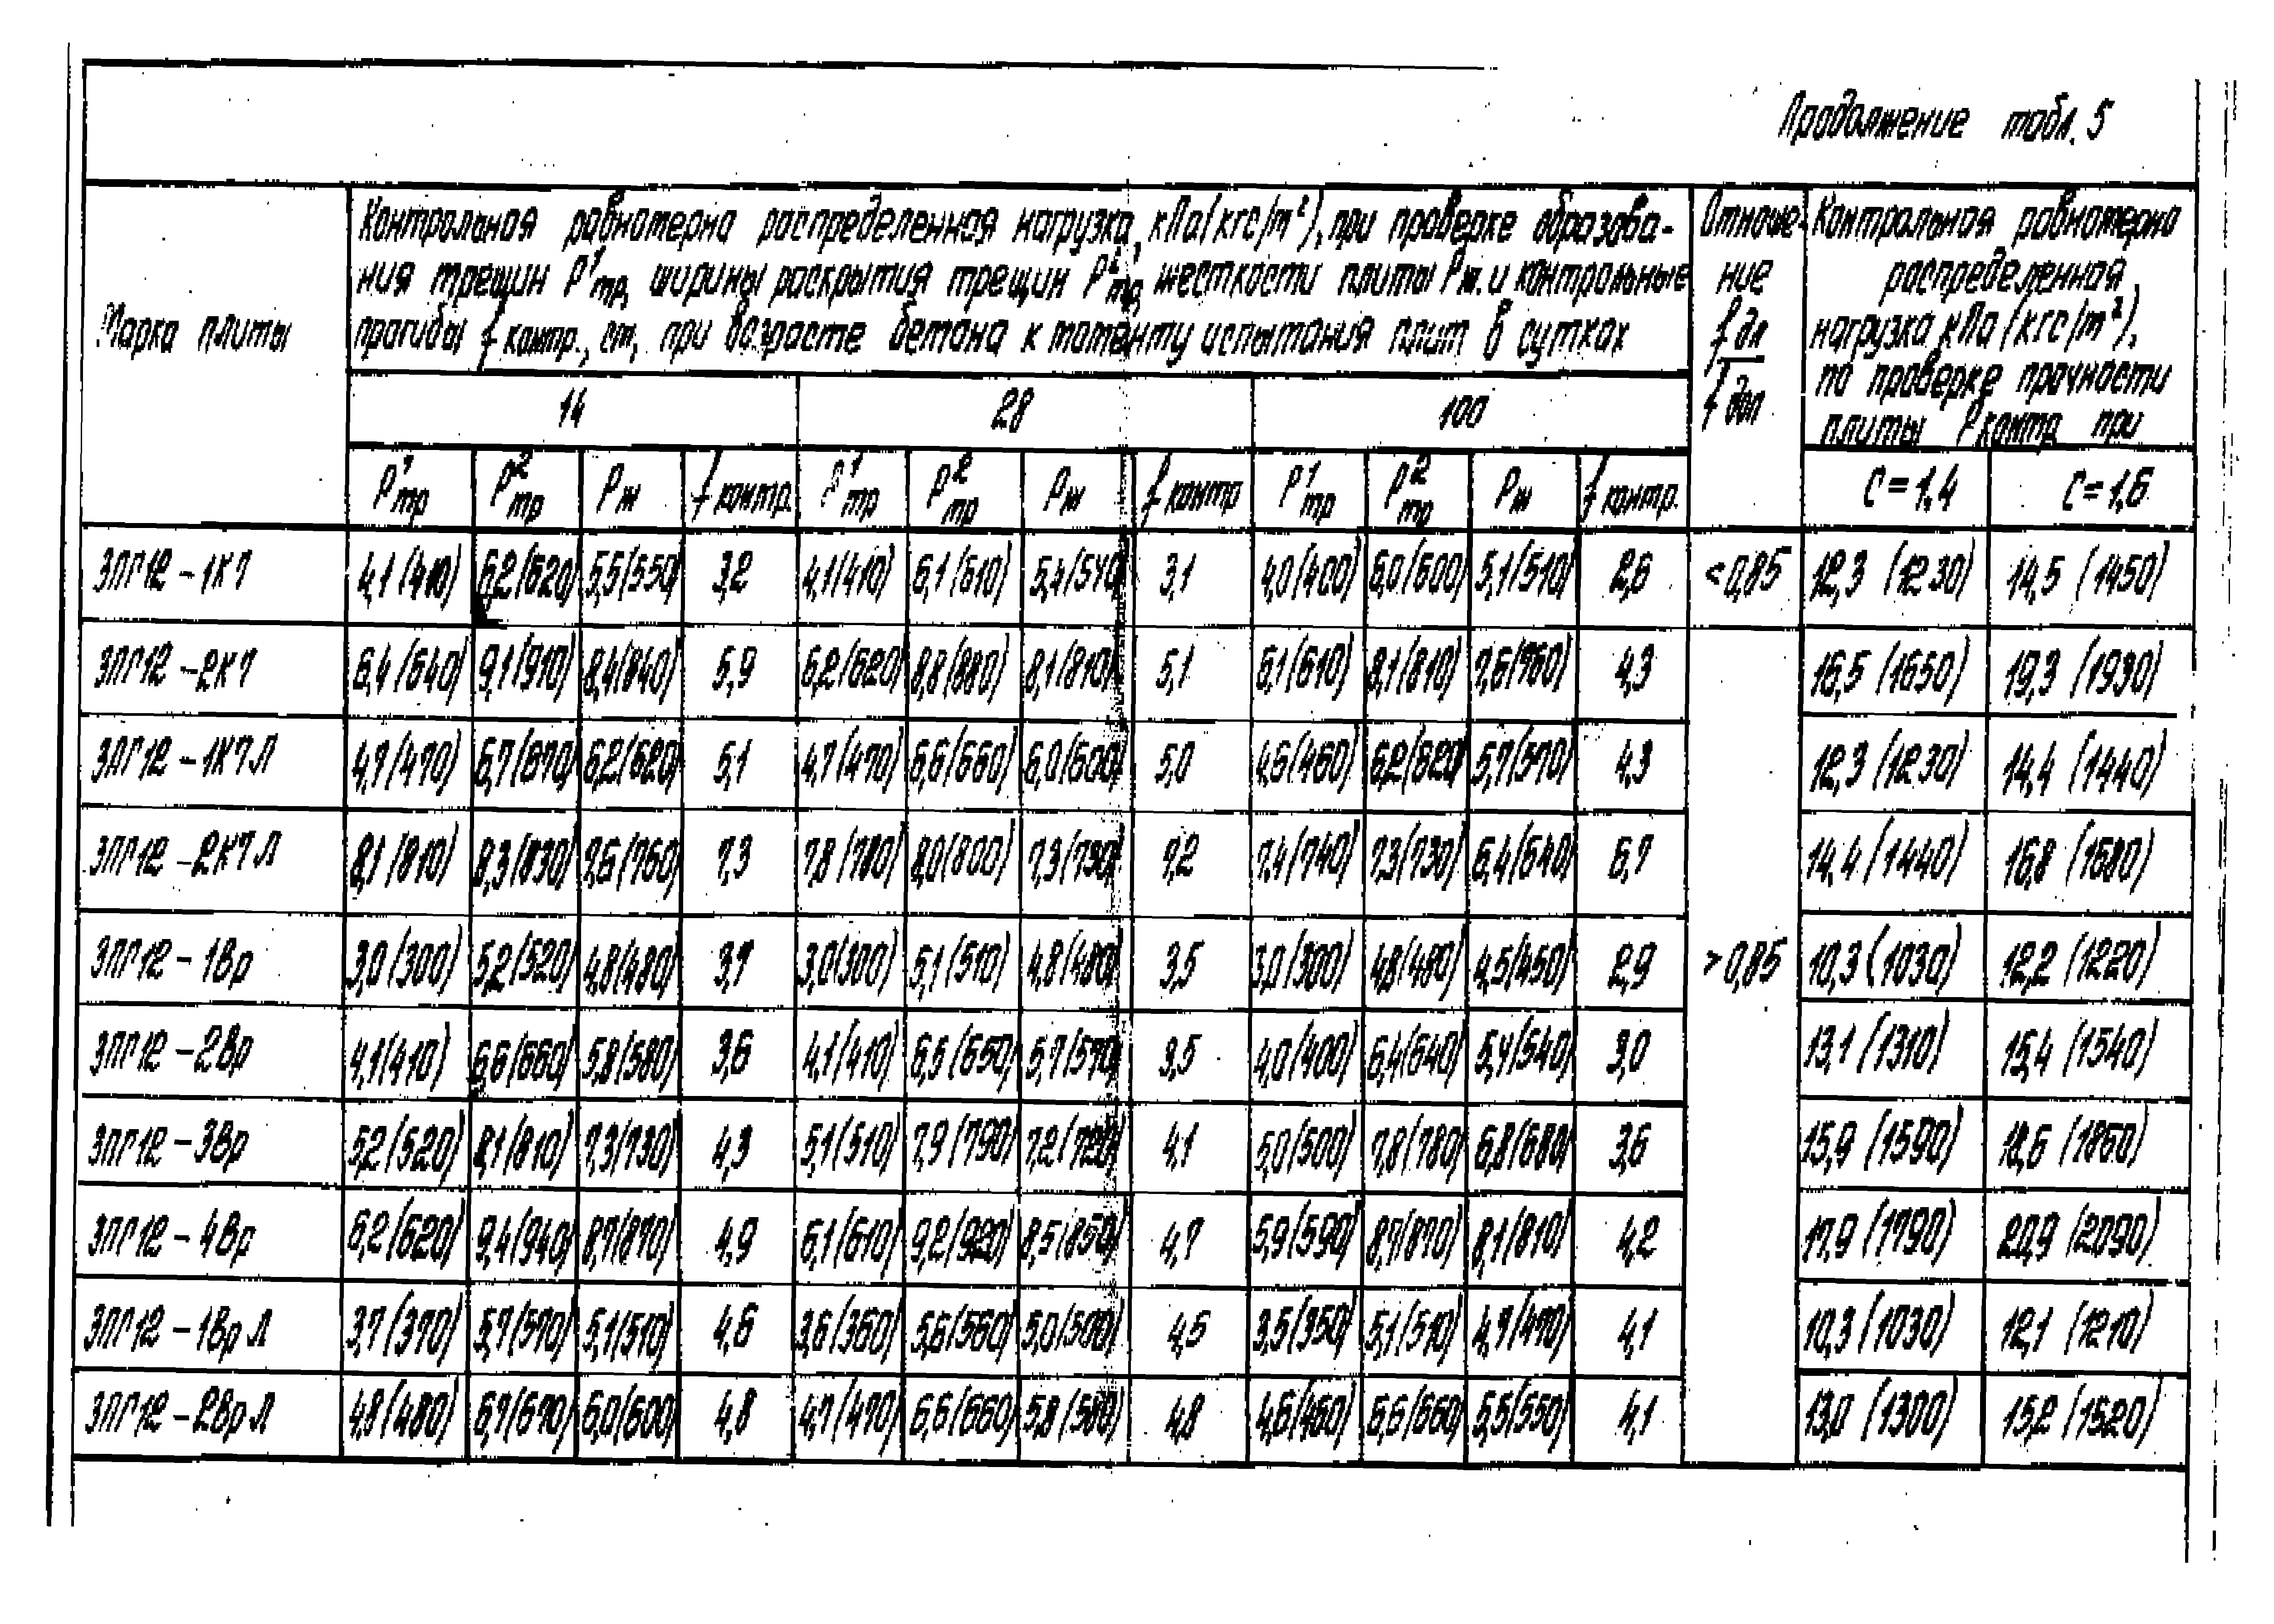 Продолжение табл. 5
Марка плиты
Контрольная равномерна распределенная нагрузка, кПа (кгс/м²), при проверке образова-
ния трещин P¹тр, ширины раскрытия трещин P²тр, жесткости плиты Pж. и контрольные
прогибы f контр., см, при возрасте бетона к моменту испытания плит в сутках
Отноше-
ние
f дл
f доп
Контрольная равномерно
распределенная
нагрузка кПа (кгс/м²),
по проверке прочности
плиты Pконтр при
14 28 100
P¹тр P²тр Pж f контр. P¹тр P²тр Pж f контр P¹тр P²тр Pж f контр. C=1,4 C=1,6
3ПГ12-1К7 4,1(410) 6,2(620) 5,5(550) 3,2 4,1(410) 6,1(610) 5,4(540) 3,1 4,0(400) 6,0(600) 5,1(510) 2,6 <0,85 12,3 (1230) 14,5 (1450)
3ПГ12-2К7 6,4(640) 9,1(910) 8,4(840) 5,9 6,2(620) 8,8(880) 8,1(810) 5,1 6,1(610) 8,1(810) 7,6(760) 4,3 16,5 (1650) 19,3 (1930)
3ПГ12-1К7Л 4,7(470) 6,7(670) 6,2(620) 5,1 4,7(470) 6,6(660) 6,0(600) 5,0 4,6(460) 6,2(620) 5,7(570) 4,3 12,3 (1230) 14,4 (1440)
3ПГ12-2К7Л 8,1(810) 8,3(830) 7,6(760) 7,3 7,8(780) 8,0(800) 7,3(730) 7,2 7,4(740) 7,3(730) 6,4(640) 6,7 14,4 (1440) 16,8 (1680)
3ПГ12-1Вр 3,0(300) 5,2(520) 4,8(480) 3,7 3,0(300) 5,1(510) 4,8(480) 3,5 3,0(300) 4,8(480) 4,5(450) 2,9 >0,85 10,3 (1030) 12,2 (1220)
3ПГ12-2Вр 4,1(410) 6,6(660) 5,8(580) 3,6 4,1(410) 6,5(650) 5,7(570) 3,5 4,0(400) 6,4(640) 5,4(540) 3,0 13,1 (1310) 15,4 (1540)
3ПГ12-3Вр 5,2(520) 8,1(810) 7,3(730) 4,3 5,1(510) 7,9(790) 7,2(720) 4,1 5,0(500) 7,8(780) 6,8(680) 3,6 15,9 (1590) 18,6 (1860)
3ПГ12-4Вр 6,2(620) 9,4(940) 8,7(870) 4,9 6,1(610) 9,2(920) 8,5(850) 4,7 5,9(590) 8,7(870) 8,1(810) 4,2 17,9 (1790) 20,9 (2090)
3ПГ12-1ВрЛ 3,7(370) 5,7(570) 5,1(510) 4,6 3,6(360) 5,6(560) 5,0(500) 4,6 3,5(350) 5,1(510) 4,7(470) 4,1 10,3 (1030) 12,1 (1210)
3ПГ12-2ВрЛ 4,8(480) 6,7(670) 6,0(600) 4,8 4,7(470) 6,6(660) 5,8(580) 4,8 4,6(460) 6,6(660) 5,5(550) 4,1 13,0 (1300) 15,2 (1520)